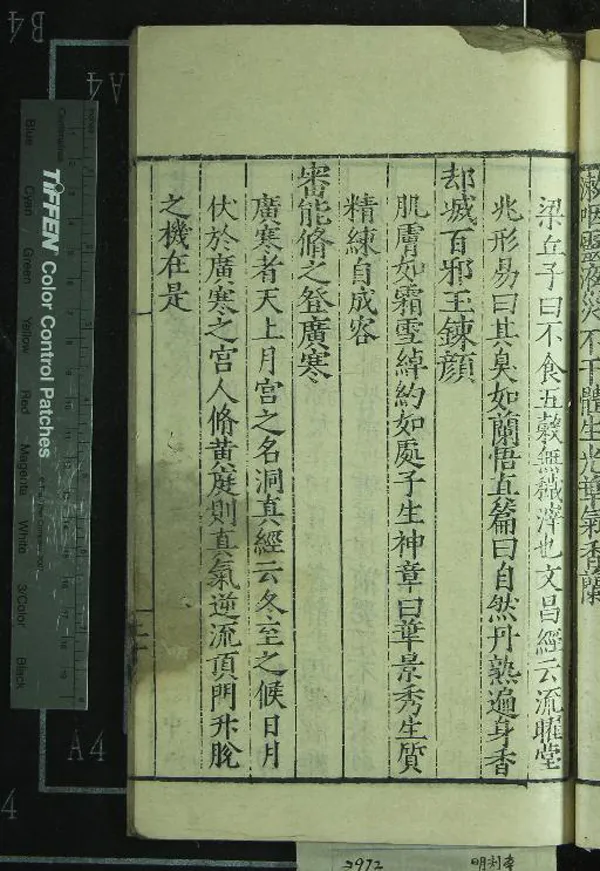 漱咽靈液災不干體生光華氣香蘭
梁丘子曰不食五穀無穢滓也文昌經云流曜堂
兆形易曰其臭如蘭悟真篇曰自然丹熟遍身香
却滅百邪玉鍊顔
肌膚如霜雪綽約如處子生神章曰華景秀生質
精練自成容
審能脩之登廣寒
廣寒者天上月宫之名洞真經云冬至之候日月
伏於廣寒之宫人脩黄庭則真氣逆流頂門升脫
之機在是
B4
A4
A4
4
TIFFEN Color Control Patches
Blue
Cyan
Green
Yellow
Red
Magenta
White
3/Color
Black
2972
明刻本